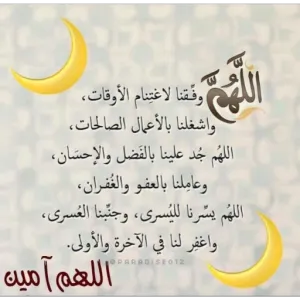 اللَّهُمَّ وفَّقنا لاغتِنام الأوقات،
واشغلنا بالأعمال الصالحات،
اللهُم جُد علينا بالفَضل والإحسَان،
وعامِلنا بالعفو والغُفران،
اللهُم يسِّرنا لليُسرى، وجنِّبنا العُسرى،
واغفِر لنا في الآخرة والأولى.
اللهم آمين